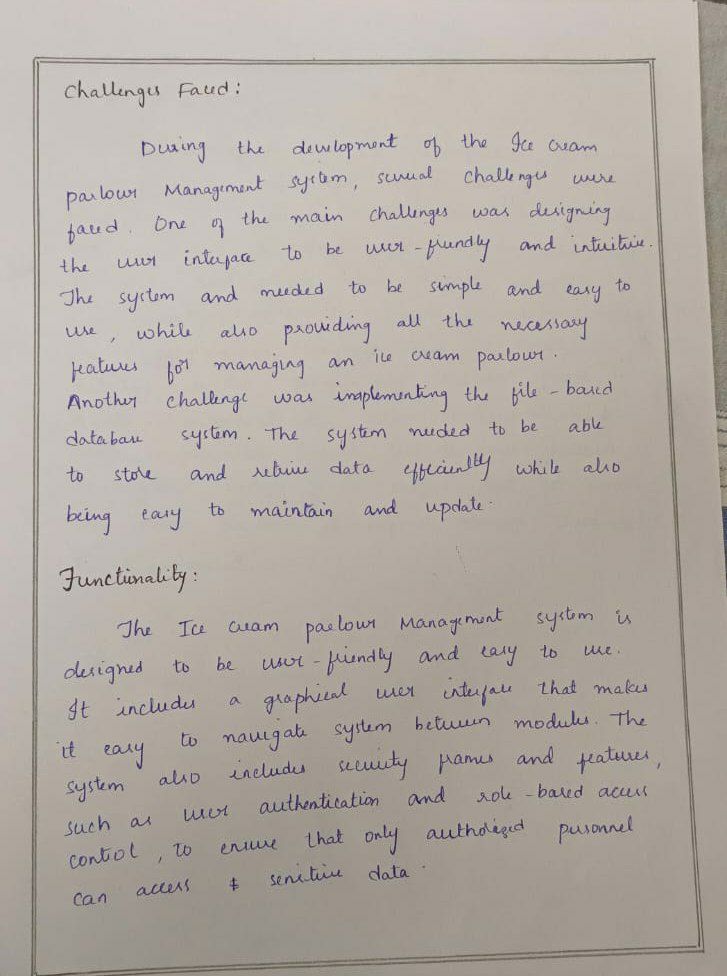 Challenges Faced:
During the development of the Ice cream
parlour Management system, several challenges were
faced. One of the main challenges was designing
the user interface to be user-friendly and intuitive.
The system and needed to be simple and easy to
use, while also providing all the necessary
features for managing an ice cream parlour.
Another challenge was implementing the file-based
database system. The system needed to be able
to store and retrive data efficiently while also
being easy to maintain and update.
Functionality:
The Ice cream parlour Management system is
designed to be user-friendly and easy to use.
It includes a graphical user interface that makes
it easy to navigate system between modules. The
system also includes security frames and features,
such as user authentication and role-based access
control, to ensure that only authorized personnel
can access & sensitive data.